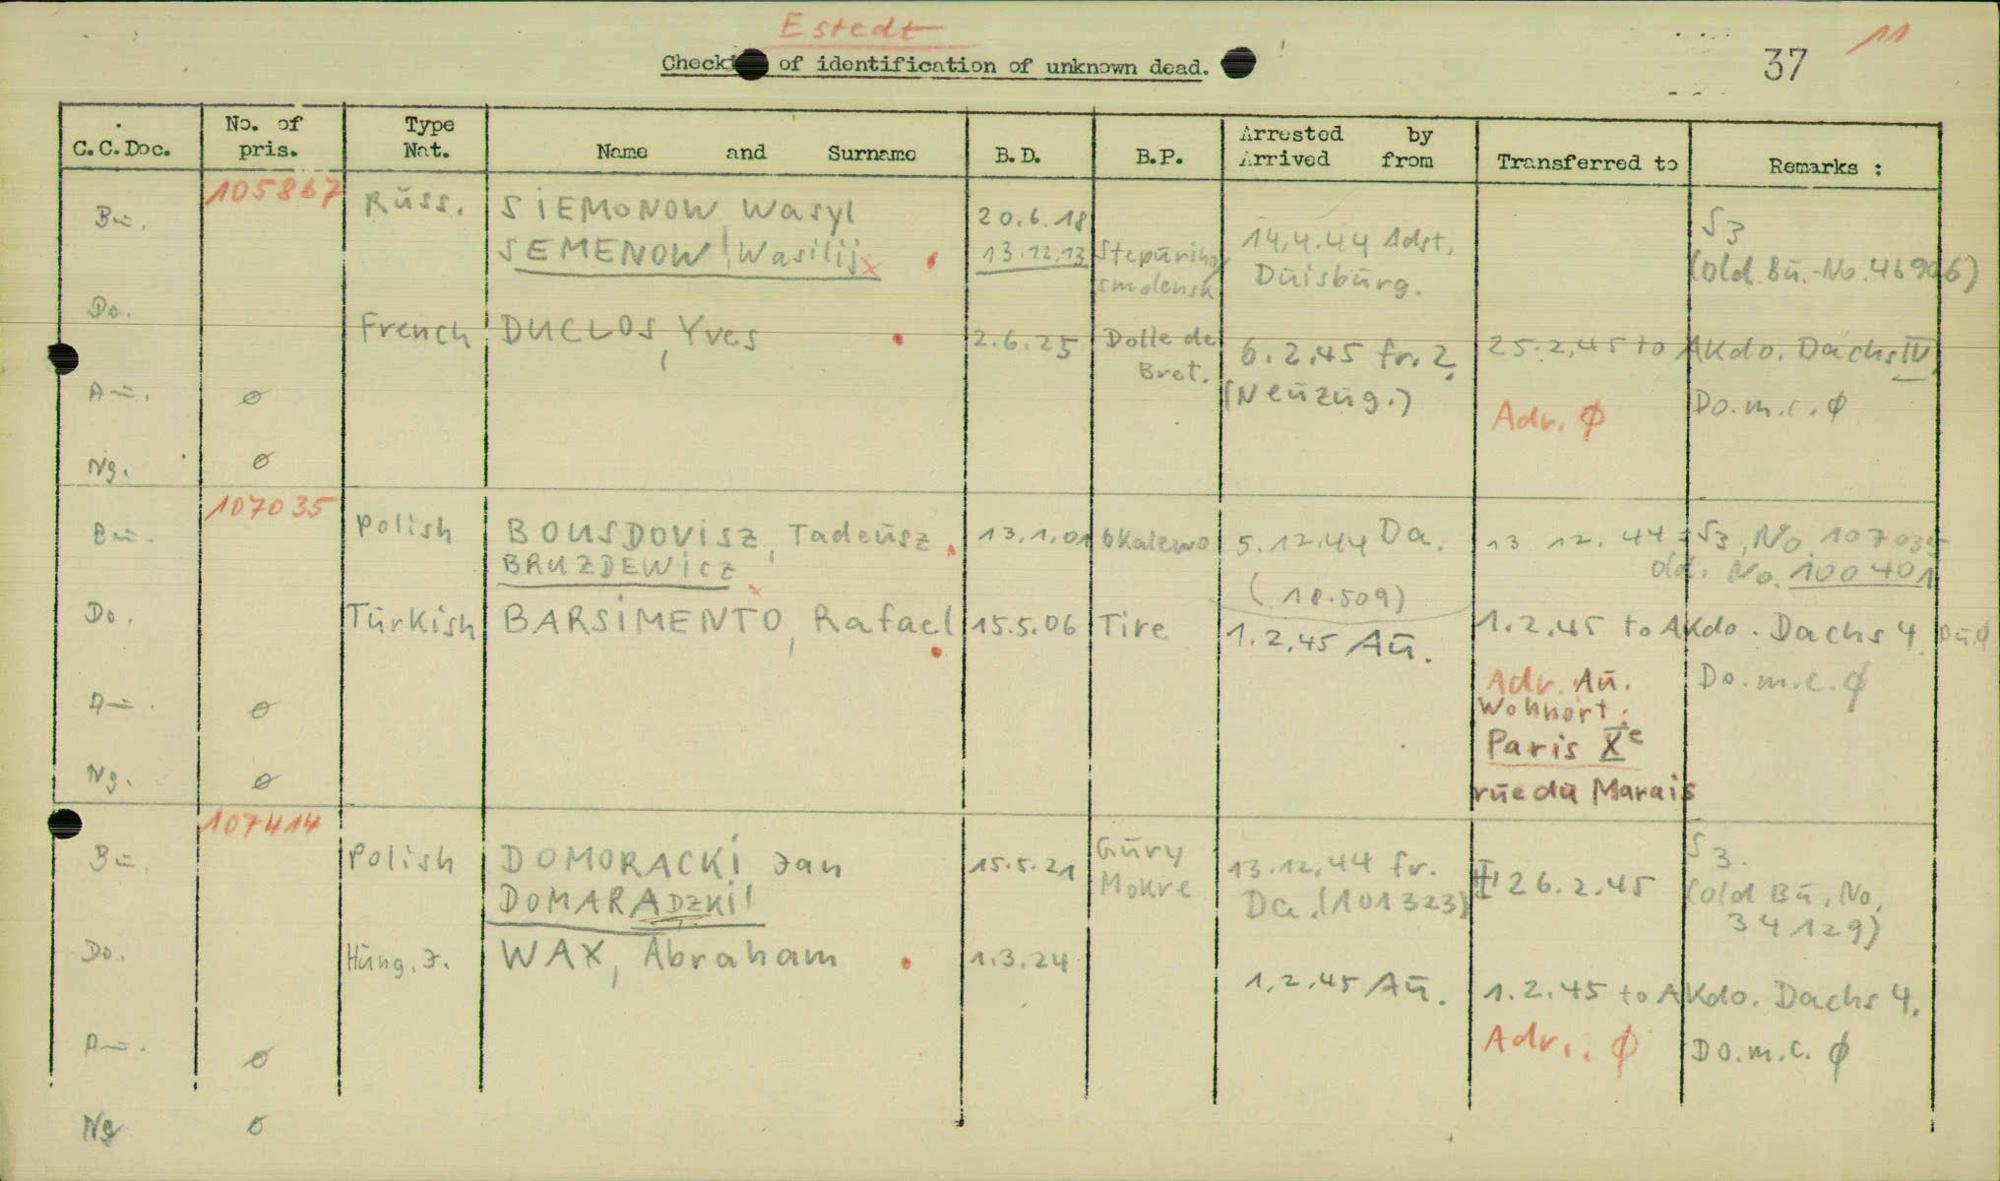 Estedt
11
Check of identification of unknown dead.
37
C.C.Doc.
No. of pris.
Type Nat.
Name and Surname
B.D.
B.P.
Arrested by
Arrived from
Transferred to
Remarks :
105867
Bū. Rūss. SIEMONOW Wasyl 20.6.18 14.4.44 Adst. S3
SEMENOW, Wasilij x 13.12.13 Smolensk Dūisbūrg. (old. Bū.-No. 46906)
Do. French DUCLOS, Yves 2.6.25 Dolle de Bret. 6.2.45 fr. ? (Neūzūg.) 25.2.45 to AKdo. Dachs IV
Aū. ø Adr. ø Do.m.c. ø
Ng. ø
107035
Bū. Polish BOUSDOVISZ, Tadeūsz 13.1.01 5.12.44 Da. 13 12. 44 S3, No. 107035
BRUZDEWICZ x (18.509) old. No. 100401
Do. Tūrkish BARSIMENTO, Rafael 15.5.06 Tire 1.2.45 Aū. 1.2.45 to AKdo. Dachs 4
Adr. Aū. Do.m.c. ø
Aū. ø Wohnort:
Paris Xe
Ng. ø rūe dū Marais
107414
Bū. Polish DOMORACKI Jan 15.5.21 Gūry Mokre 13.12.44 fr. Da. (101323) 26.2.45 S3.
DOMARADZKI (old Bū. No. 34129)
Do. Hūng. J. WAX, Abraham 1.3.24 1.2.45 Aū. 1.2.45 to AKdo. Dachs 4.
Aū. ø Adr.: ø Do.m.c. ø
Ng ø